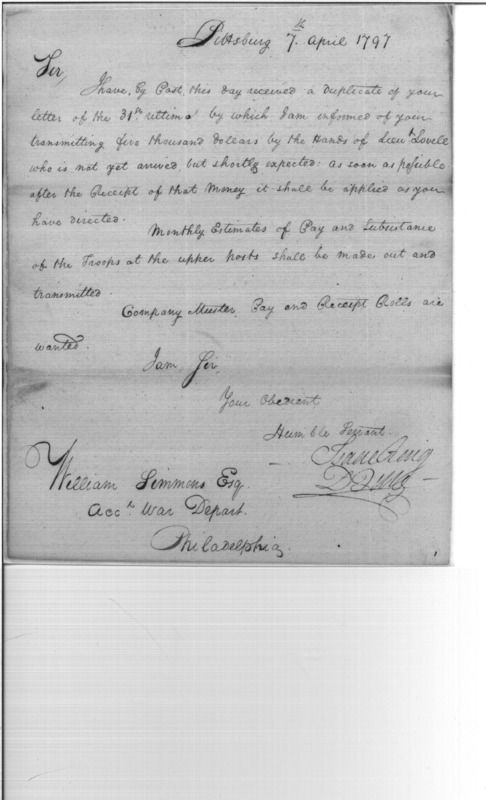 Pittsburg 7th April 1797
Sir,
I have, by Post, this day received a duplicate of your
letter of the 31st ultimo by which I am informed of your
transmitting five thousand dollars by the Hands of Lieut Lovell
who is not yet arrived, but shortly expected: as soon as possible
after the Receipt of that Money it shall be applied as you
have directed.
Monthly Estimates of Pay and Subsistance
of the Troops at the upper posts shall be made out and
transmitted.
Company Muster, Pay and Receipt Rolls are
wanted.
I am Sir,
Your Obedient
Humble Servant.
Isaac Craig
William Simmons Esq.
Acct War Depart.
Philadelphia.